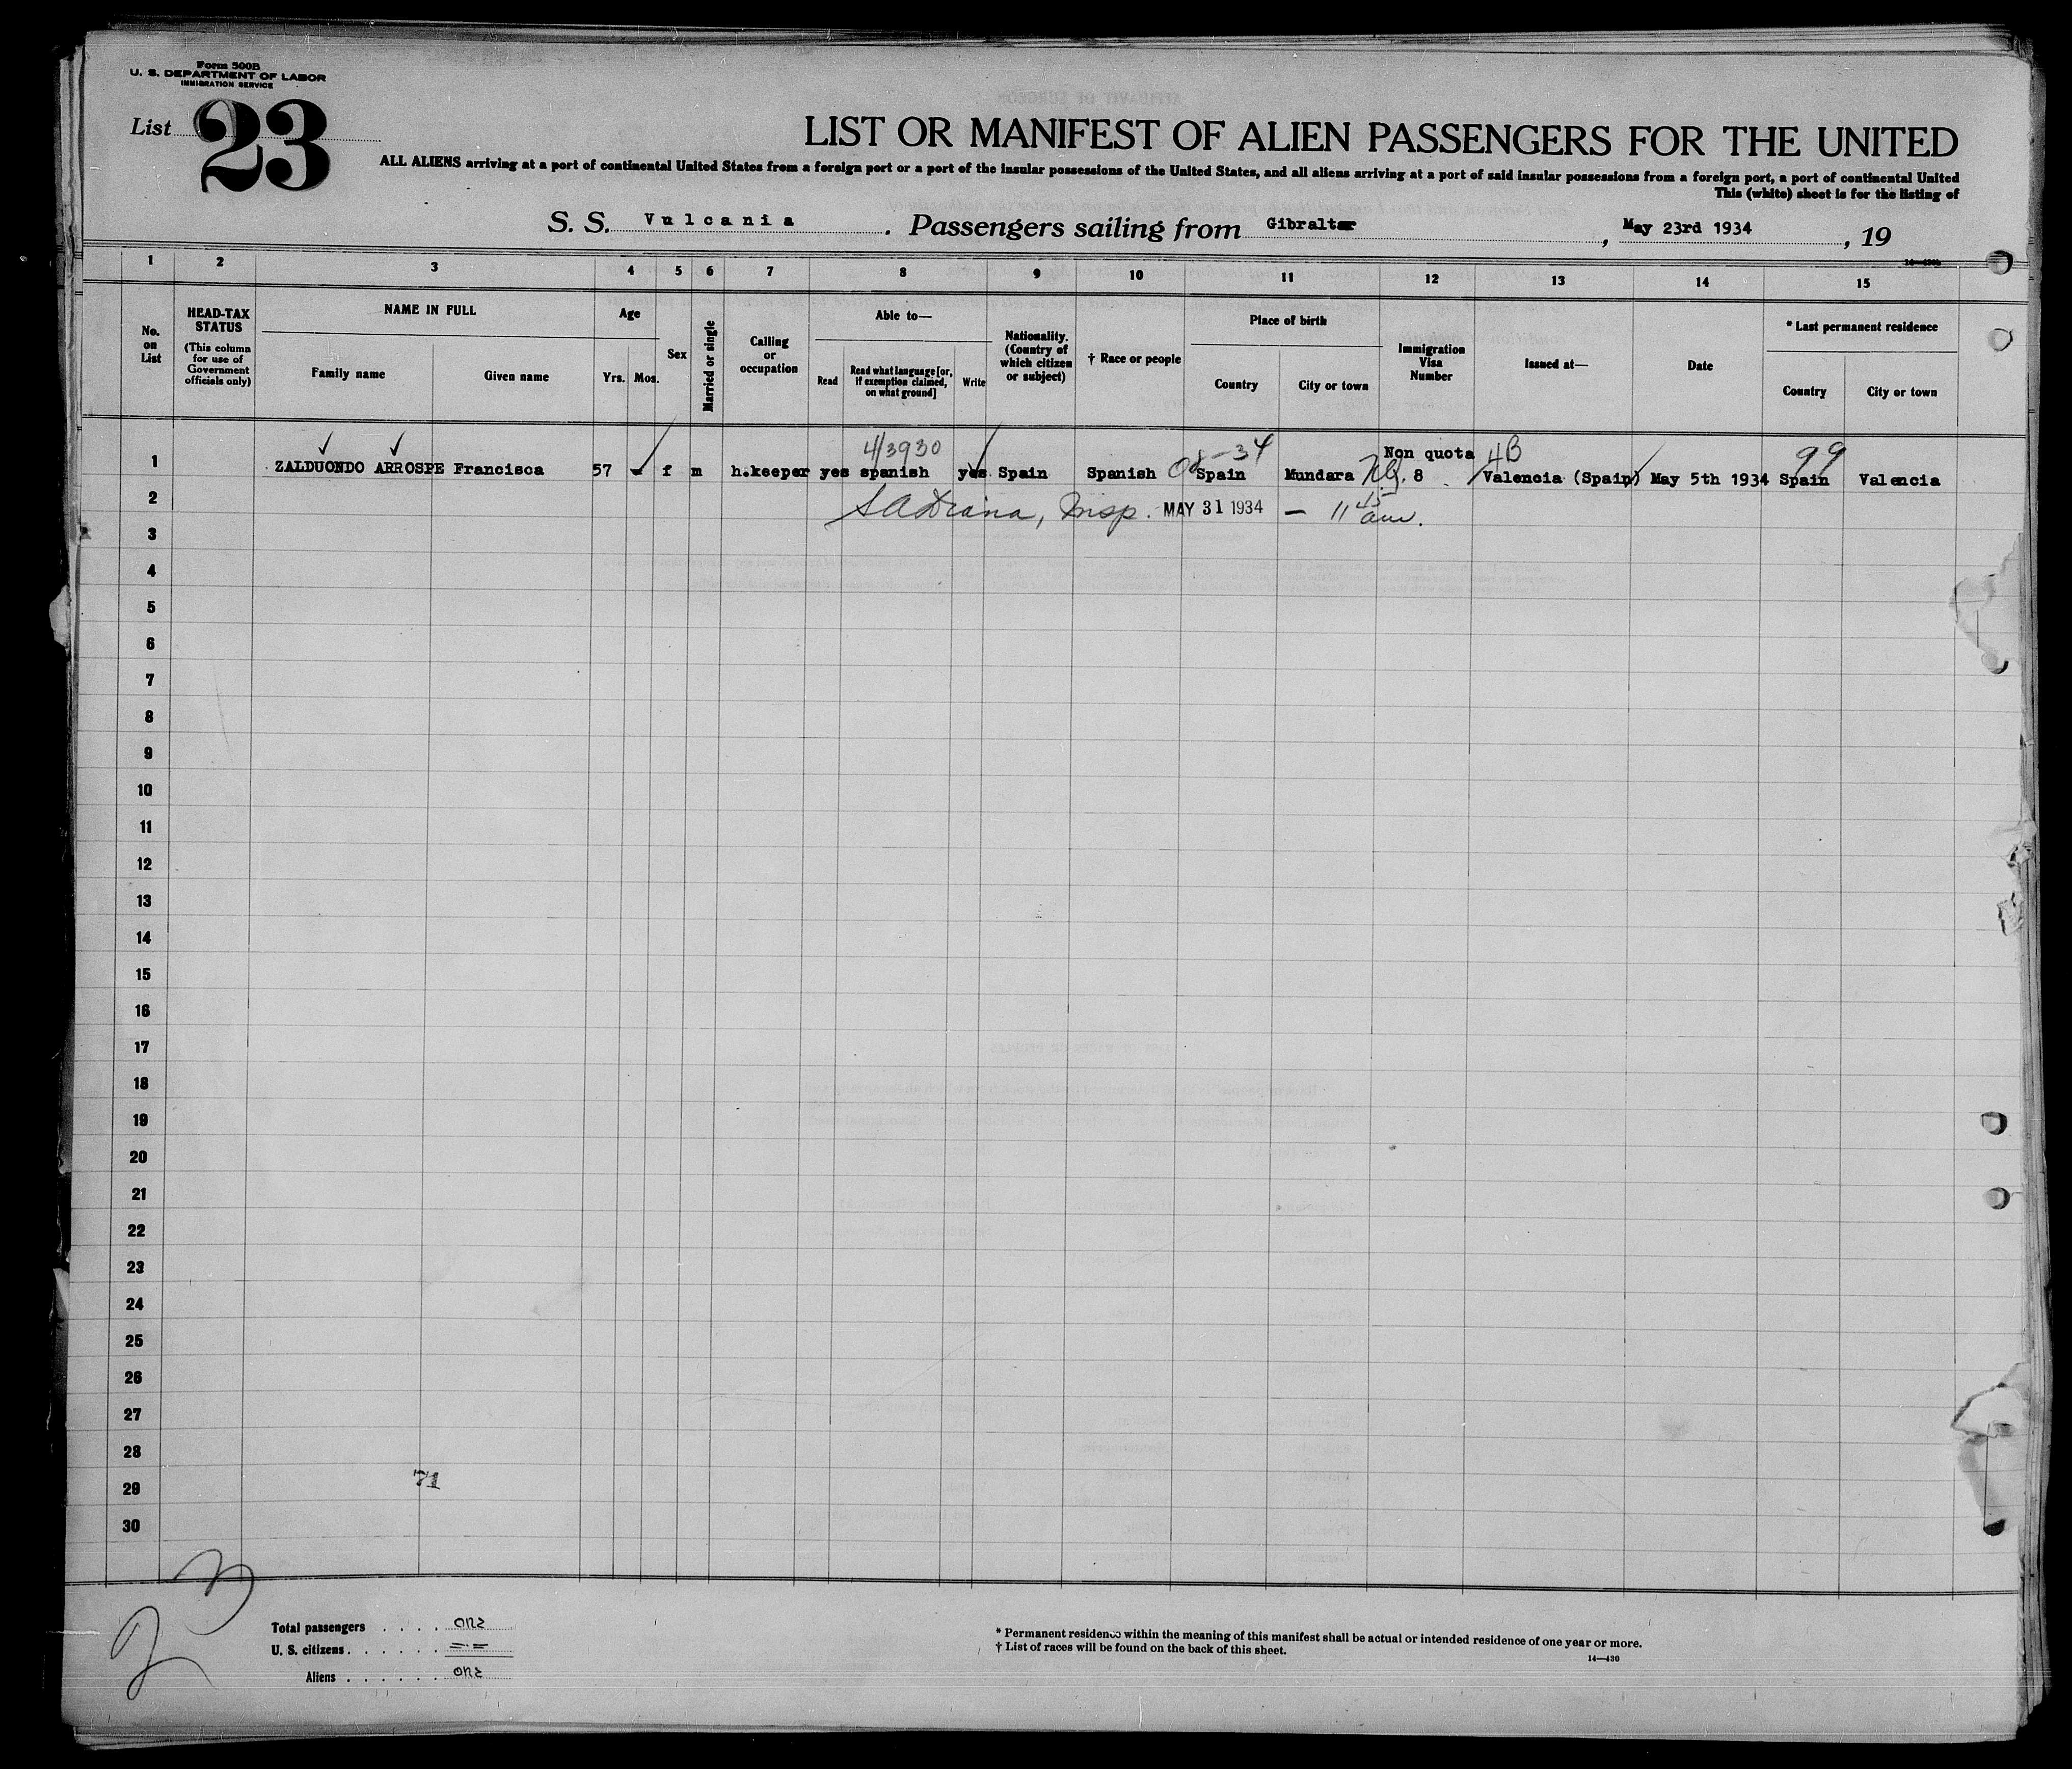 Form 500B
U. S. DEPARTMENT OF LABOR
IMMIGRATION SERVICE
List 23
LIST OR MANIFEST OF ALIEN PASSENGERS FOR THE UNITED
ALL ALIENS arriving at a port of continental United States from a foreign port or a port of the insular possessions of the United States, and all aliens arriving at a port of said insular possessions from a foreign port, a port of continental United
This (white) sheet is for the listing of
S. S. Vulcania . Passengers sailing from Gibraltar , May 23rd 1934 , 19
1 2 3 4 5 6 7 8 9 10 11 12 13 14 15
No. on List
HEAD-TAX STATUS (This column for use of Government officials only)
NAME IN FULL
Family name Given name
Age
Yrs. Mos.
Sex
Married or single
Calling or occupation
Able to—
Read
Read what language [or, if exemption claimed, on what ground]
Write
Nationality. (Country of which citizen or subject)
† Race or people
Place of birth
Country City or town
Immigration Visa Number
Issued at—
Date
* Last permanent residence
Country City or town
4/3930 08-34 Non quota 4B 99
1 ZALDUONDO ARROSPE Francisca 57 f m h.keeper yes spanish yes Spain Spanish Spain Mundara 8 Valencia (Spain) May 5th 1934 Spain Valencia
2 Insp. MAY 31 1934 — 11 45 am.
3
4
5
6
7
8
9
10
11
12
13
14
15
16
17
18
19
20
21
22
23
24
25
26
27
28
29 71
30
Total passengers . . . . one
U. S. citizens . . . . . . =-=
Aliens . . . . . . one
* Permanent residence within the meaning of this manifest shall be actual or intended residence of one year or more.
† List of races will be found on the back of this sheet.
14—430